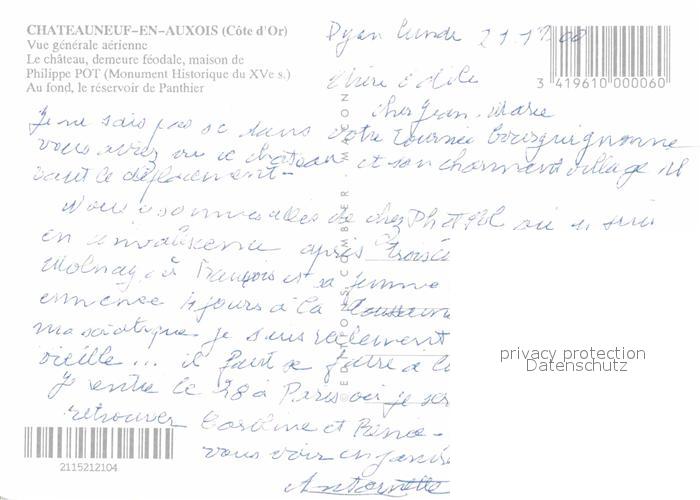 CHATEAUNEUF-EN-AUXOIS (Côte d'Or)
Vue générale aérienne
Le château, demeure féodale, maison de
Philippe POT (Monument Historique du XVe s.)
Au fond, le réservoir de Panthier
3 419610 000060
cher Jean Marie
Je ne sais pas si dans votre tournée bourguignonne
vous avez vu ce château et son charmant village il
vaut le déplacement -
Nous sommes allés de chez
en convalescence après
François et sa femme
4 jours à la
ma sciatique je suis réellement
vieille ... il faut se faire à l
Je rentre le 28 à Paris où je ser
retrouver Caroline et
vous voir en janvie
Antoinette
EDITIONS COMBIER MACON
2115212104
privacy protection
Datenschutz